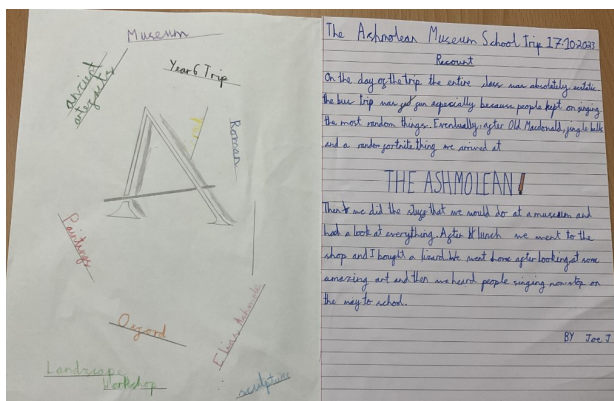 Museum
Year 6 Trip
ancient
artefacts
Roman
A
Paintings
Oxford
Elias Ashmole
Landscape
Workshop
sculpture
The Ashmolean Museum School Trip 17.10.2023
Recount
On the day of the trip the entire class was absolutely ecstatic
the bus trip was fun especially because people kept on singing
the most random things. Eventually, after Old Macdonald, jingle bells
and a random fortnite thing we arrived at
THE ASHMOLEAN!
Then we did the stuff that we would do at a museum and
had a look at everything. After lunch we went to the
shop and I bought a lizard. We went home after looking at some
amazing art and then we heard people singing non-stop on
the way to school.
BY Joe J